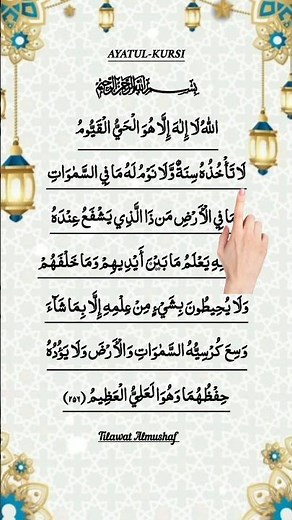 AYATUL-KURSI
بِسْمِ اللهِ الرَّحْمٰنِ الرَّحِيْمِ
اَللهُ لَا إِلٰهَ إِلَّا هُوَ الْحَيُّ الْقَيُّومُ
لَا تَأْخُذُهُ سِنَةٌ وَّلَا نَوْمٌ لَهُ مَا فِي السَّمَوَاتِ
مَا فِي الْأَرْضِ مَن ذَا الَّذِي يَشْفَعُ عِنْدَهُ
يَعْلَمُ مَا بَيْنَ أَيْدِيهِمْ وَمَا خَلْفَهُمْ
وَلَا يُحِيطُونَ بِشَيْءٍ مِنْ عِلْمِهِ إِلَّا بِمَا شَاءَ
وَسِعَ كُرْسِيُّهُ السَّمَوَاتِ وَالْأَرْضَ وَلَا يَؤُدُهُ
حِفْظُهُمَا وَهُوَ الْعَلِيُّ الْعَظِيمُ (٢٥٢)
Tilawat Almushaf